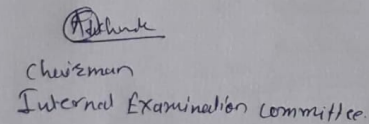 Chairman
Internal Examination Committee.